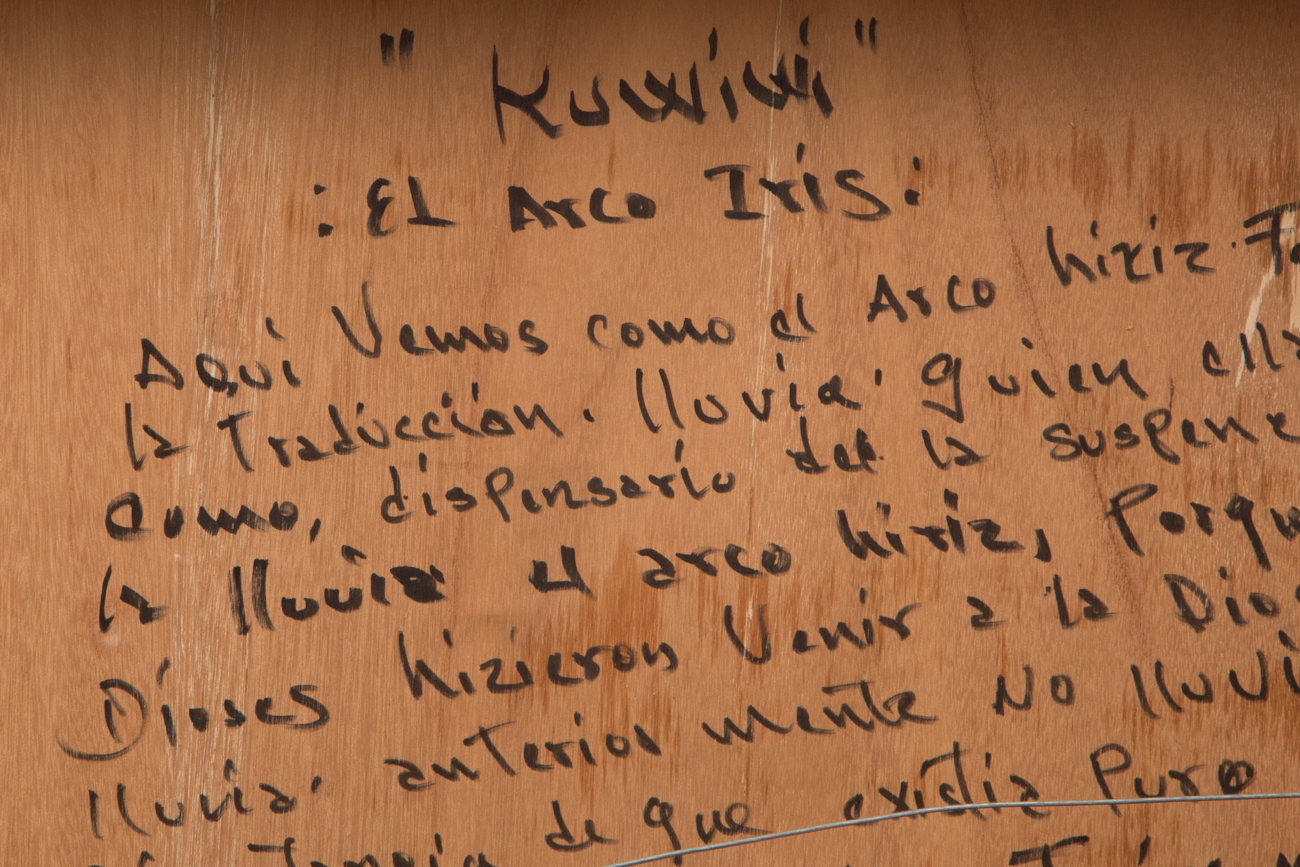 " Kuwiwi "
: EL Arco Iris :
Aqui Vemos como el Arco hiriz.
la Traducción. lluvia. quien
como, dispensario del la
la lluvia el arco hiriz,
Dioses hizieron Venir a la
lluvia. anterior mente No
de que existia Puro